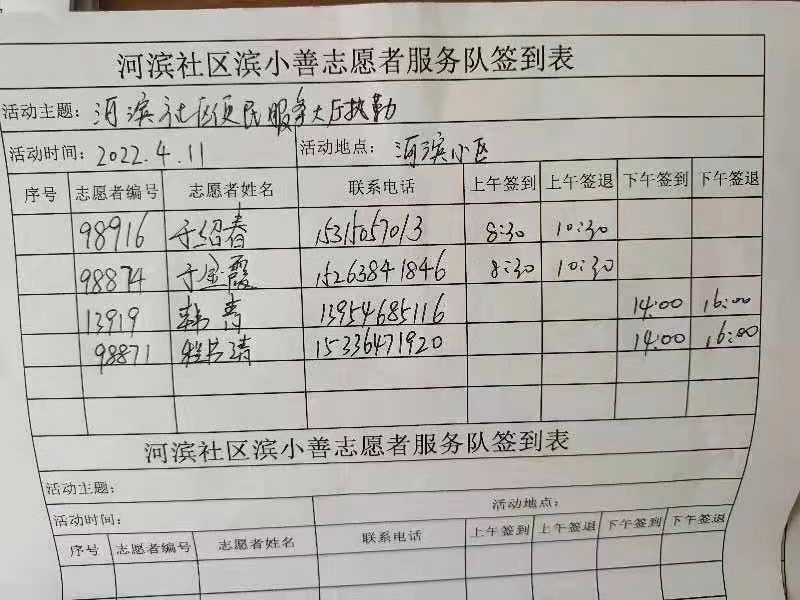 河滨社区滨小善志愿者服务队签到表
活动主题: 河滨社区便民服务大厅执勤
活动时间: 2022.4.11 活动地点: 河滨小区
序号 志愿者编号 志愿者姓名 联系电话 上午签到 上午签退 下午签到 下午签退
98916 于绍春 15315057013 8:30 10:30
98874 于金霞 15263841846 8:30 10:30
13919 韩青 13954685116 14:00 16:00
98871 15336471920 14:00 16:00
河滨社区滨小善志愿者服务队签到表
活动主题:
活动时间: 活动地点:
序号 志愿者编号 志愿者姓名 联系电话 上午签到 上午签退 下午签到 下午签退